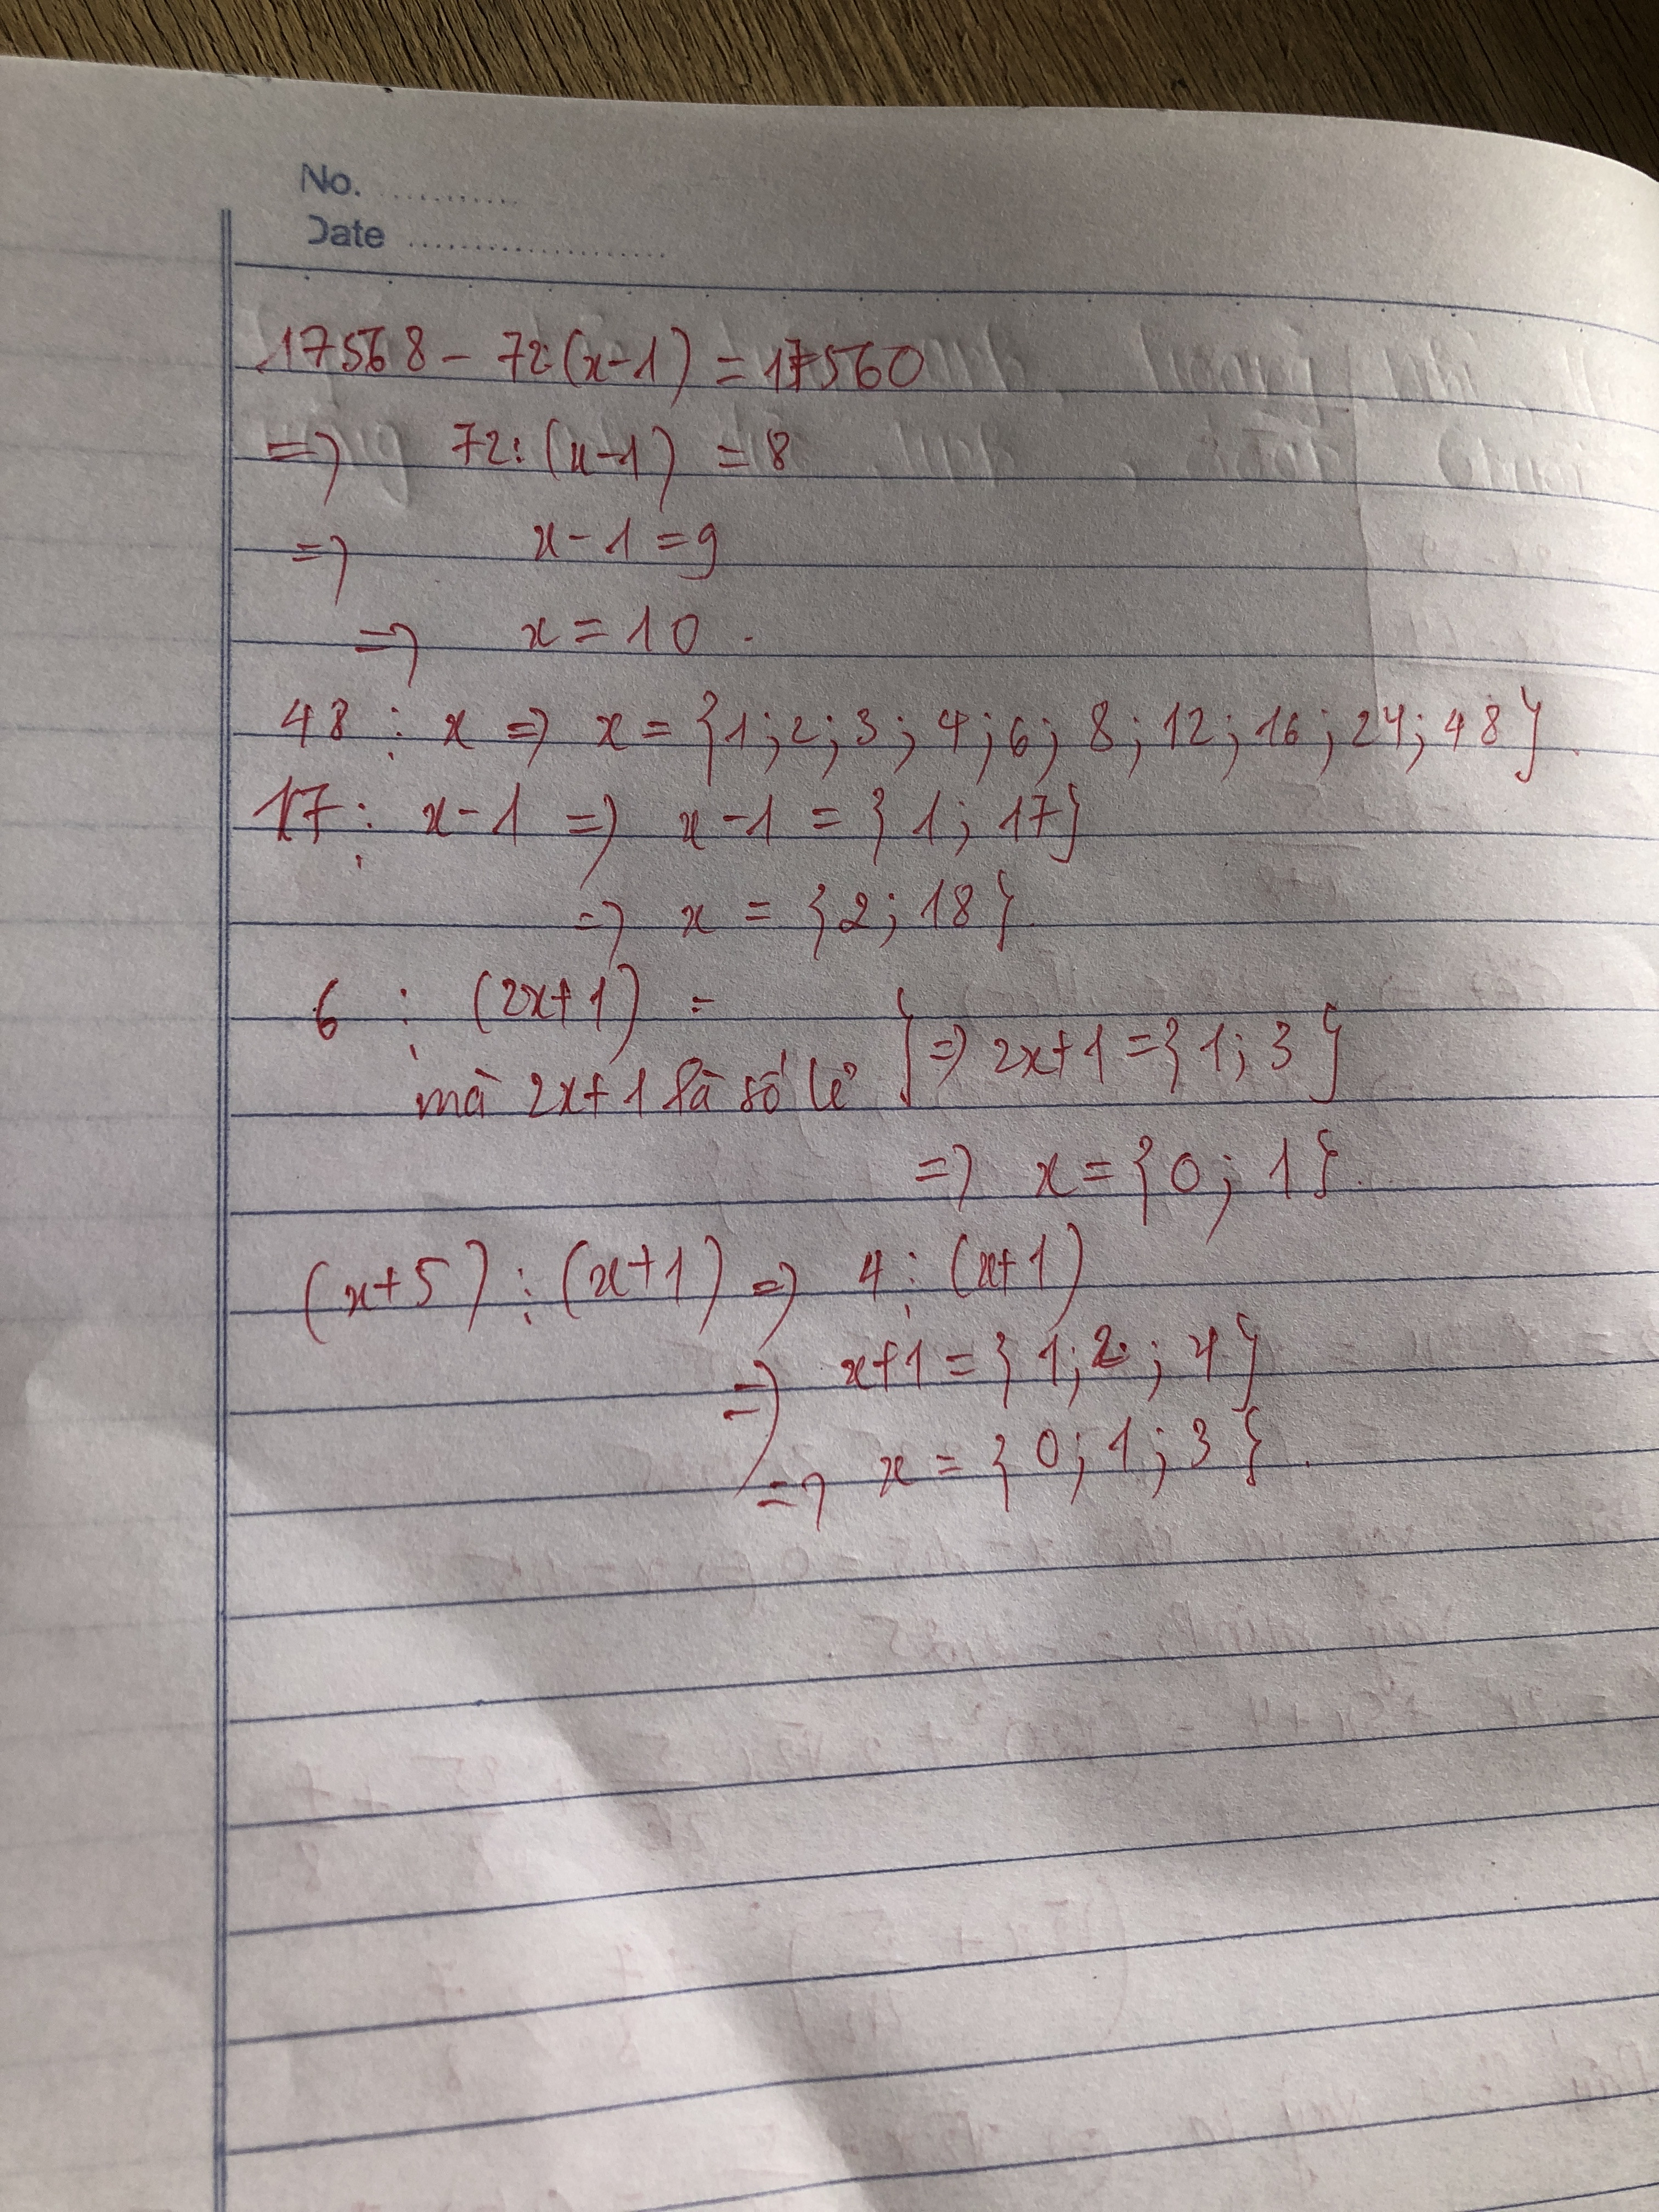 No. ............
Date ......................
17568 - 72:(x-1) = 17560
=> 72:(x-1) = 8
=> x-1=9
=> x=10.
48 ⋮ x => x={1;2;3;4;6;8;12;16;24;48}.
17 ⋮ x-1 => x-1={1;17}
=> x={2;18}.
6 ⋮ (2x+1) =
mà 2x+1 là số lẻ } => 2x+1={1;3}
=> x={0;1}.
(x+5) ⋮ (x+1) => 4 ⋮ (x+1)
=> x+1={1;2;4}
=> x={0;1;3}.